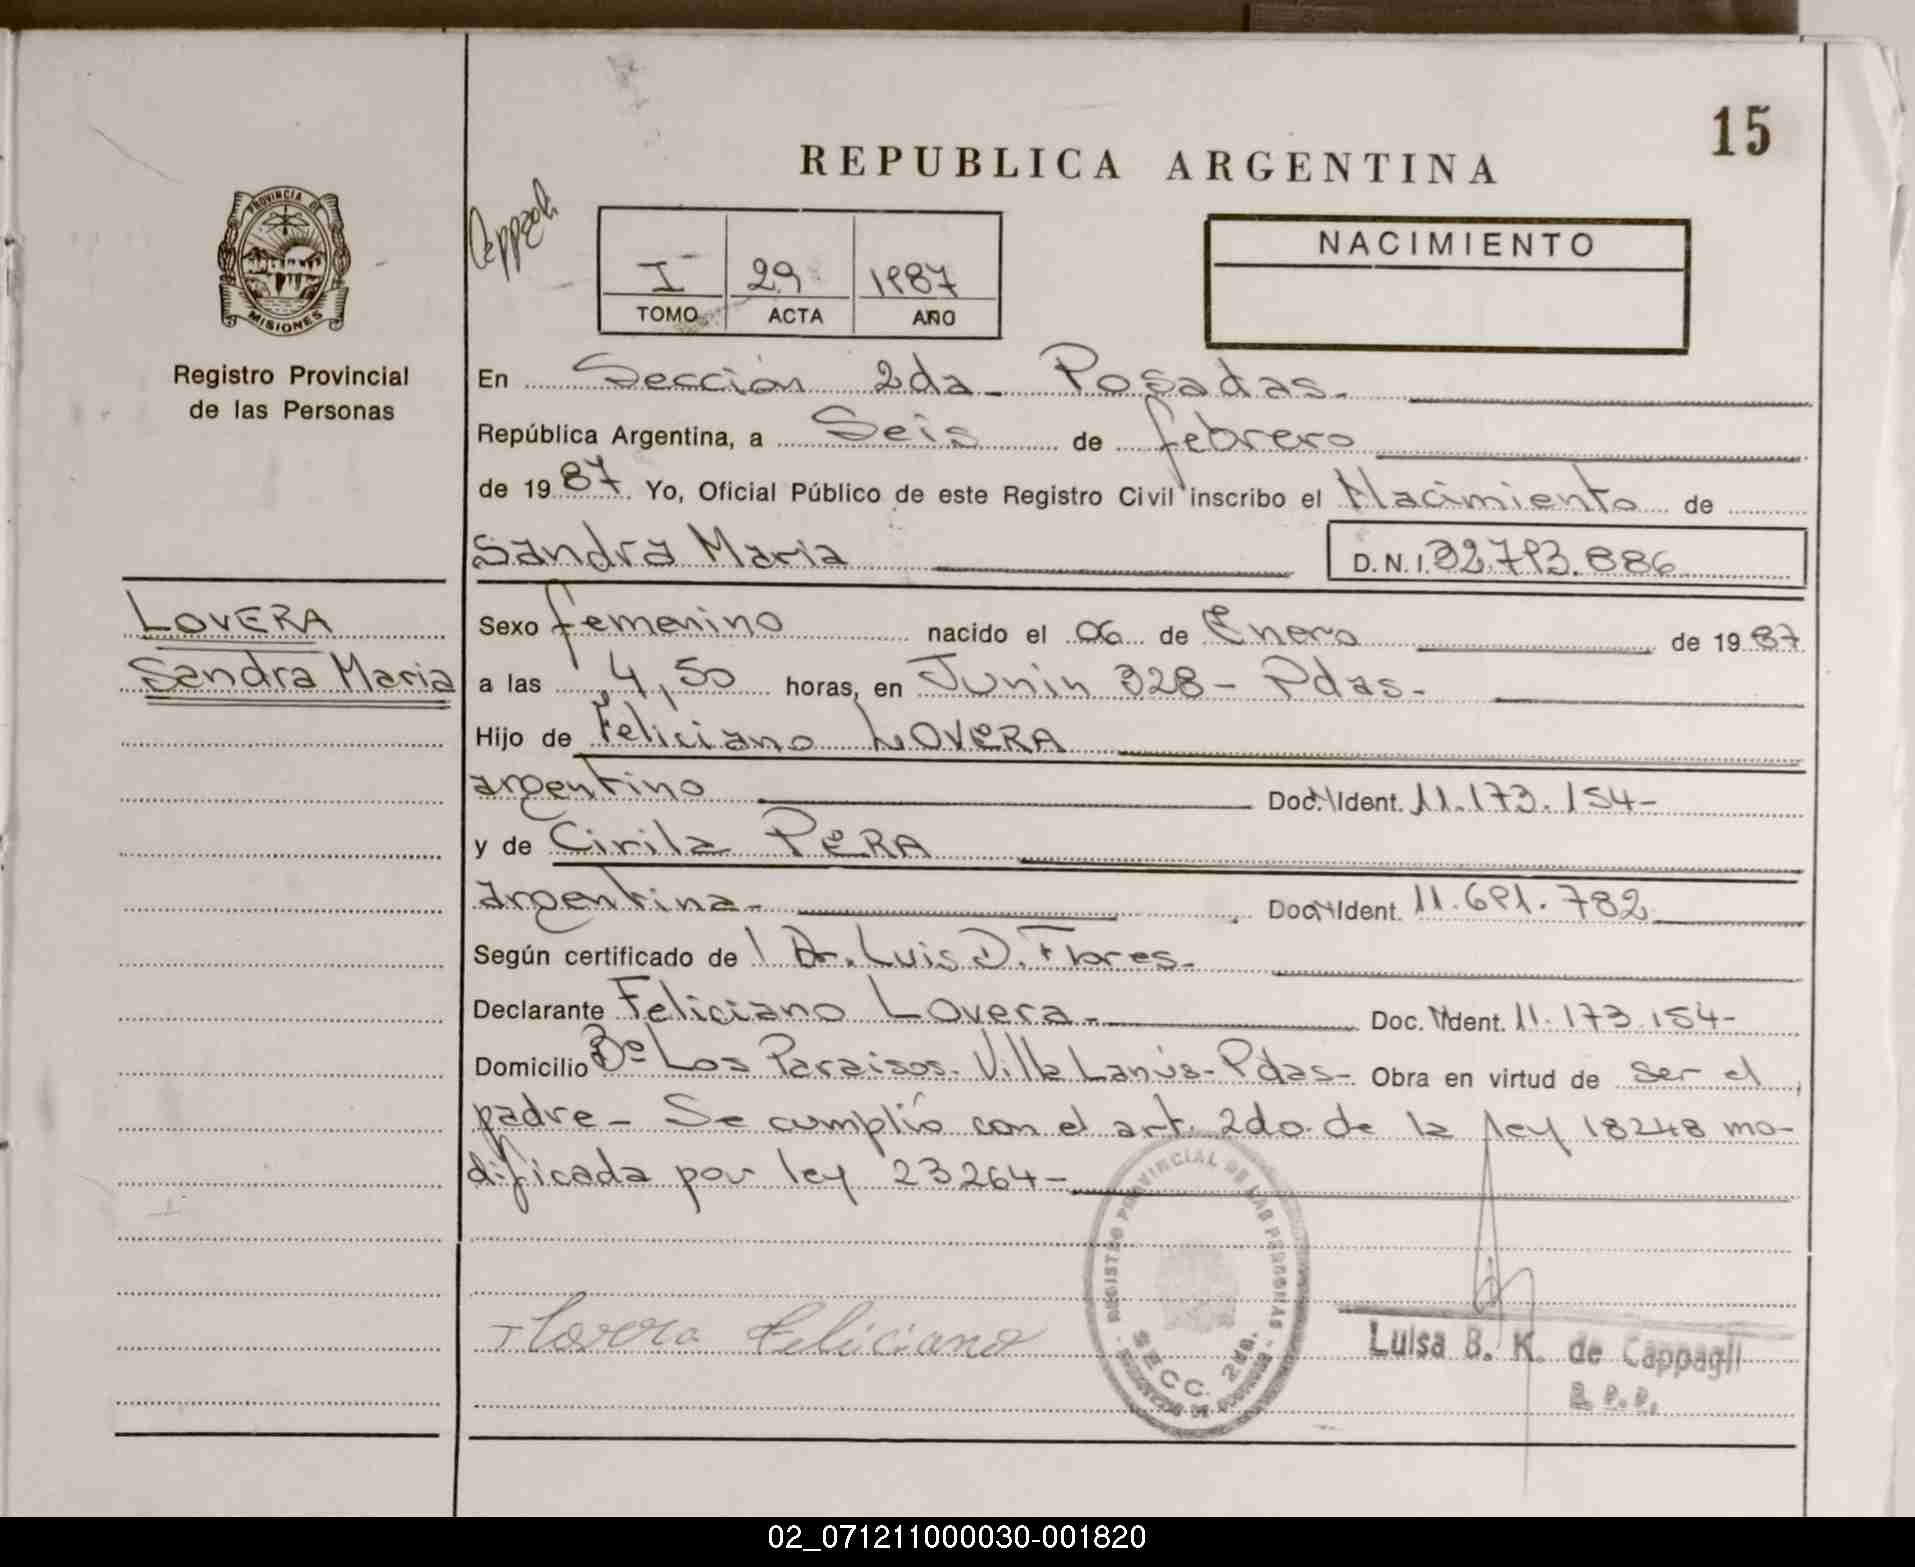 15
REPUBLICA ARGENTINA
PROVINCIA DE
MISIONES
Registro Provincial
de las Personas
I 29 1987
TOMO ACTA AÑO
NACIMIENTO
En Sección 2da - Posadas.
República Argentina, a Seis de febrero
de 1987. Yo, Oficial Público de este Registro Civil inscribo el Nacimiento de
Sandra Maria D.N.I. 32.793.886
LOVERA
Sandra Maria
Sexo femenino nacido el 06 de Enero de 1987
a las 4,50 horas, en Junin 328 - Pdas.-
Hijo de Feliciano LOVERA
argentino Doc. Ident. 11.173.154-
y de Cirila PERA
argentina- Doc. Ident. 11.691.782
Según certificado de Dr. Luis D. Flores-
Declarante Feliciano Lovera- Doc. Ident. 11.173.154-
Domicilio Bº Los Paraisos. Villa Lanús-Pdas- Obra en virtud de ser el
padre - Se cumplió con el art. 2do. de la ley 18248 mo-
dificada por ley 23264-
REGISTRO PROVINCIAL DE LAS PERSONAS
SECC. 2DA.
Lovera Feliciano
Luisa B. K. de Cappagli
02_071211000030-001820